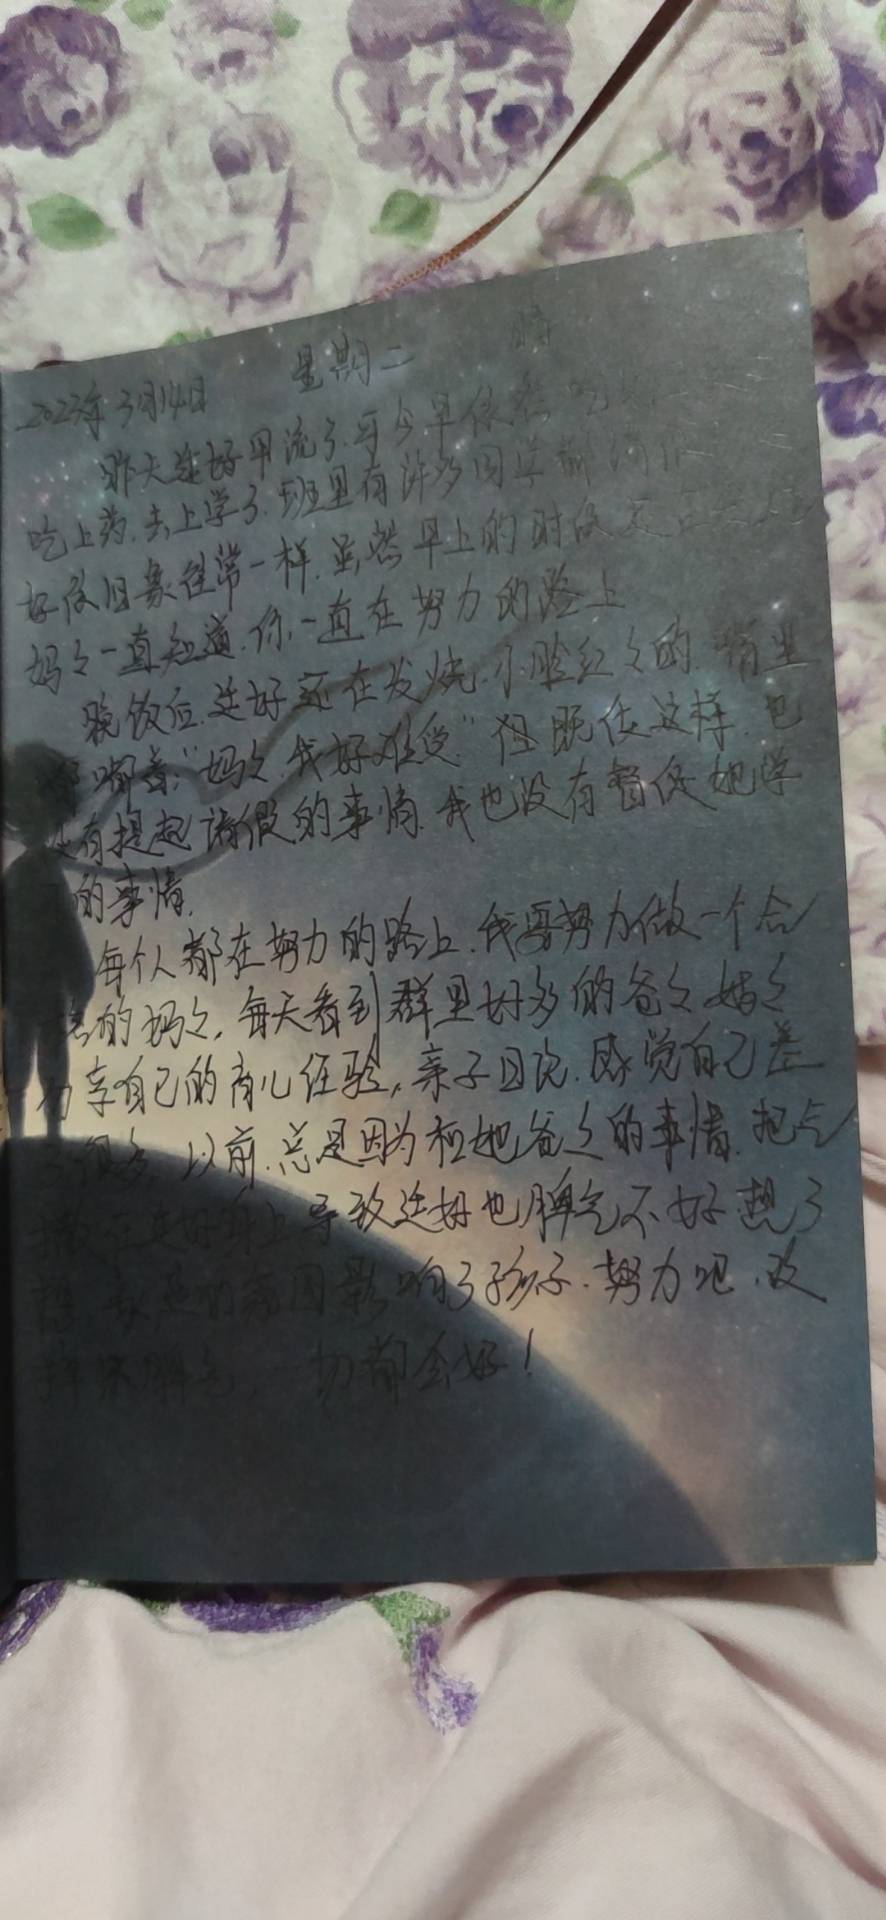 2023年3月14日 星期二 晴
昨天廷好甲流了.可今早依然吃
吃上药.去上学了.班里有许多同学都请假
好依旧象往常一样.虽然早上的时候
妈々一直知道.你.一直在努力的路上
晚饭后.廷好还在发烧.小脸红々的.
嘟着:"妈々.我好难受."但既使这样.也
没有提起请假的事情.我也没有督促她学
的事情.
每个人都在努力的路上.我要努力做一个合
的妈々,每天看到群里好多的爸々妈々
分享自己的育儿经验,亲子日记.感觉自己差
了很多.以前.总是因为和她爸々的事情.把气
撒在廷好身上导致廷好也脾气不好.想了
影响了孩子.努力吧.改
掉坏脾气,一切都会好!